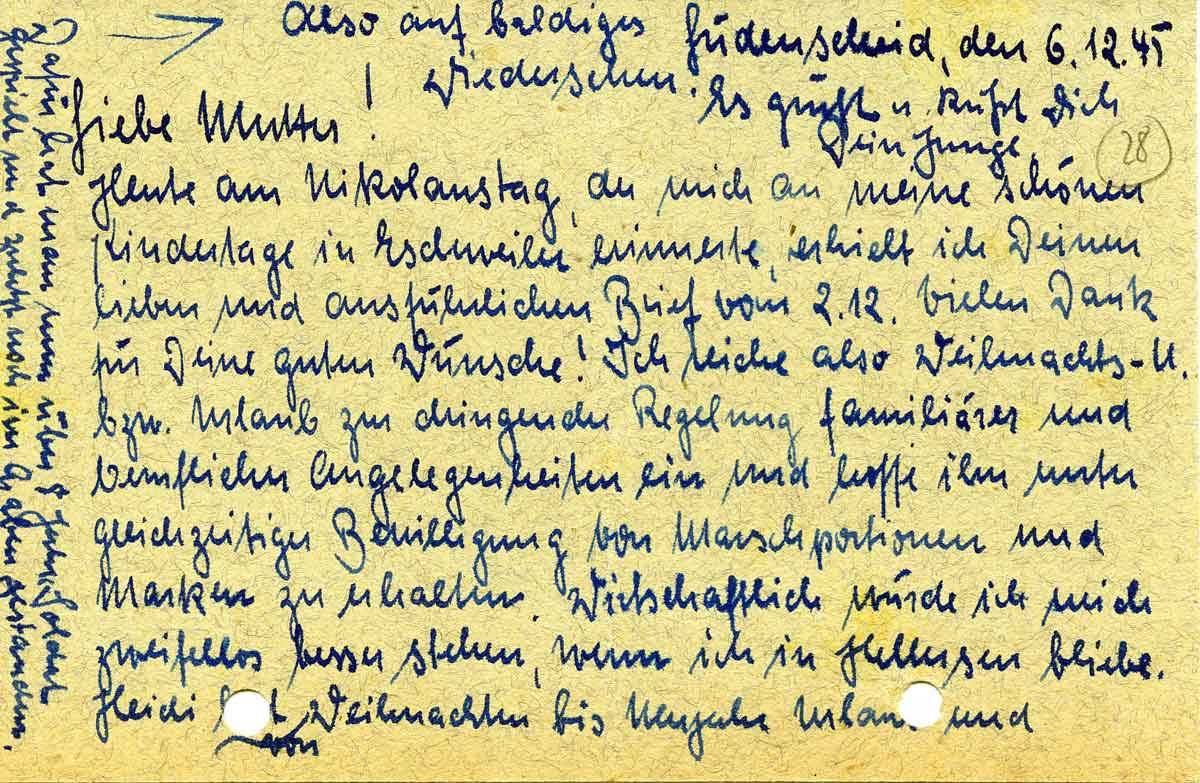 Lüdenscheid, den 6.12.45
Liebe Mutter!
Heute am Nikolaustag, der mich an meine schönen
Kindertage in Eschweiler erinnerte, erhielt ich Deinen
lieben und ausführlichen Brief vom 2.12. Vielen Dank
für Deine guten Wünsche! Ich reiche also Weihnachts-U.
bzw. Urlaub zur dringenden Regelung familiärer und
beruflicher Angelegenheiten ein und hoffe ihn unter
gleichzeitiger Bewilligung von Marschportionen und
Marken zu erhalten. Wirtschaftlich würde ich mich
zweifellos besser stehen, wenn ich in Hellersen bliebe.
Heidi hat von Weihnachten bis Neujahr Urlaub und
Dafür hat man nun über 8 Jahre Soldat
gespielt und zuletzt noch im Graben gestanden.
Also auf baldiges
Wiedersehen!
Es grüßt u. küßt Dich
Dein Junge.
28